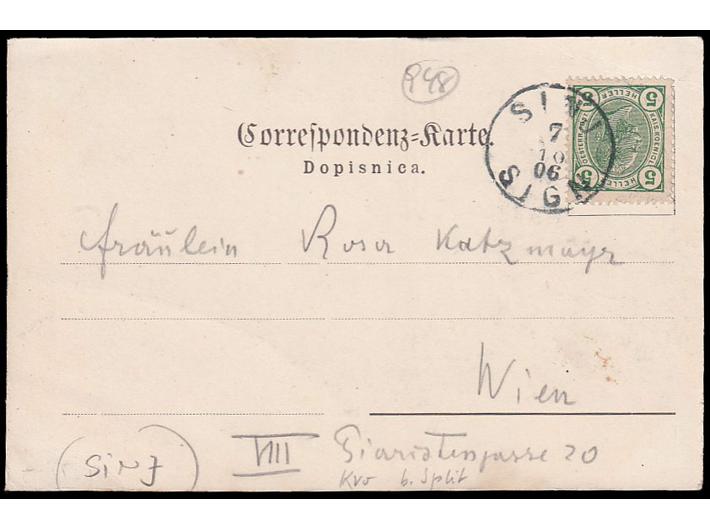 948
Correspondenz-Karte.
Dopisnica.
SINJ
7
10
06
SIGN
5 HELLER 5
5 HELLER 5
Fräulein Rosa Katzmayr
Wien
VIII Piaristengasse 20
(SINJ)
b. Split